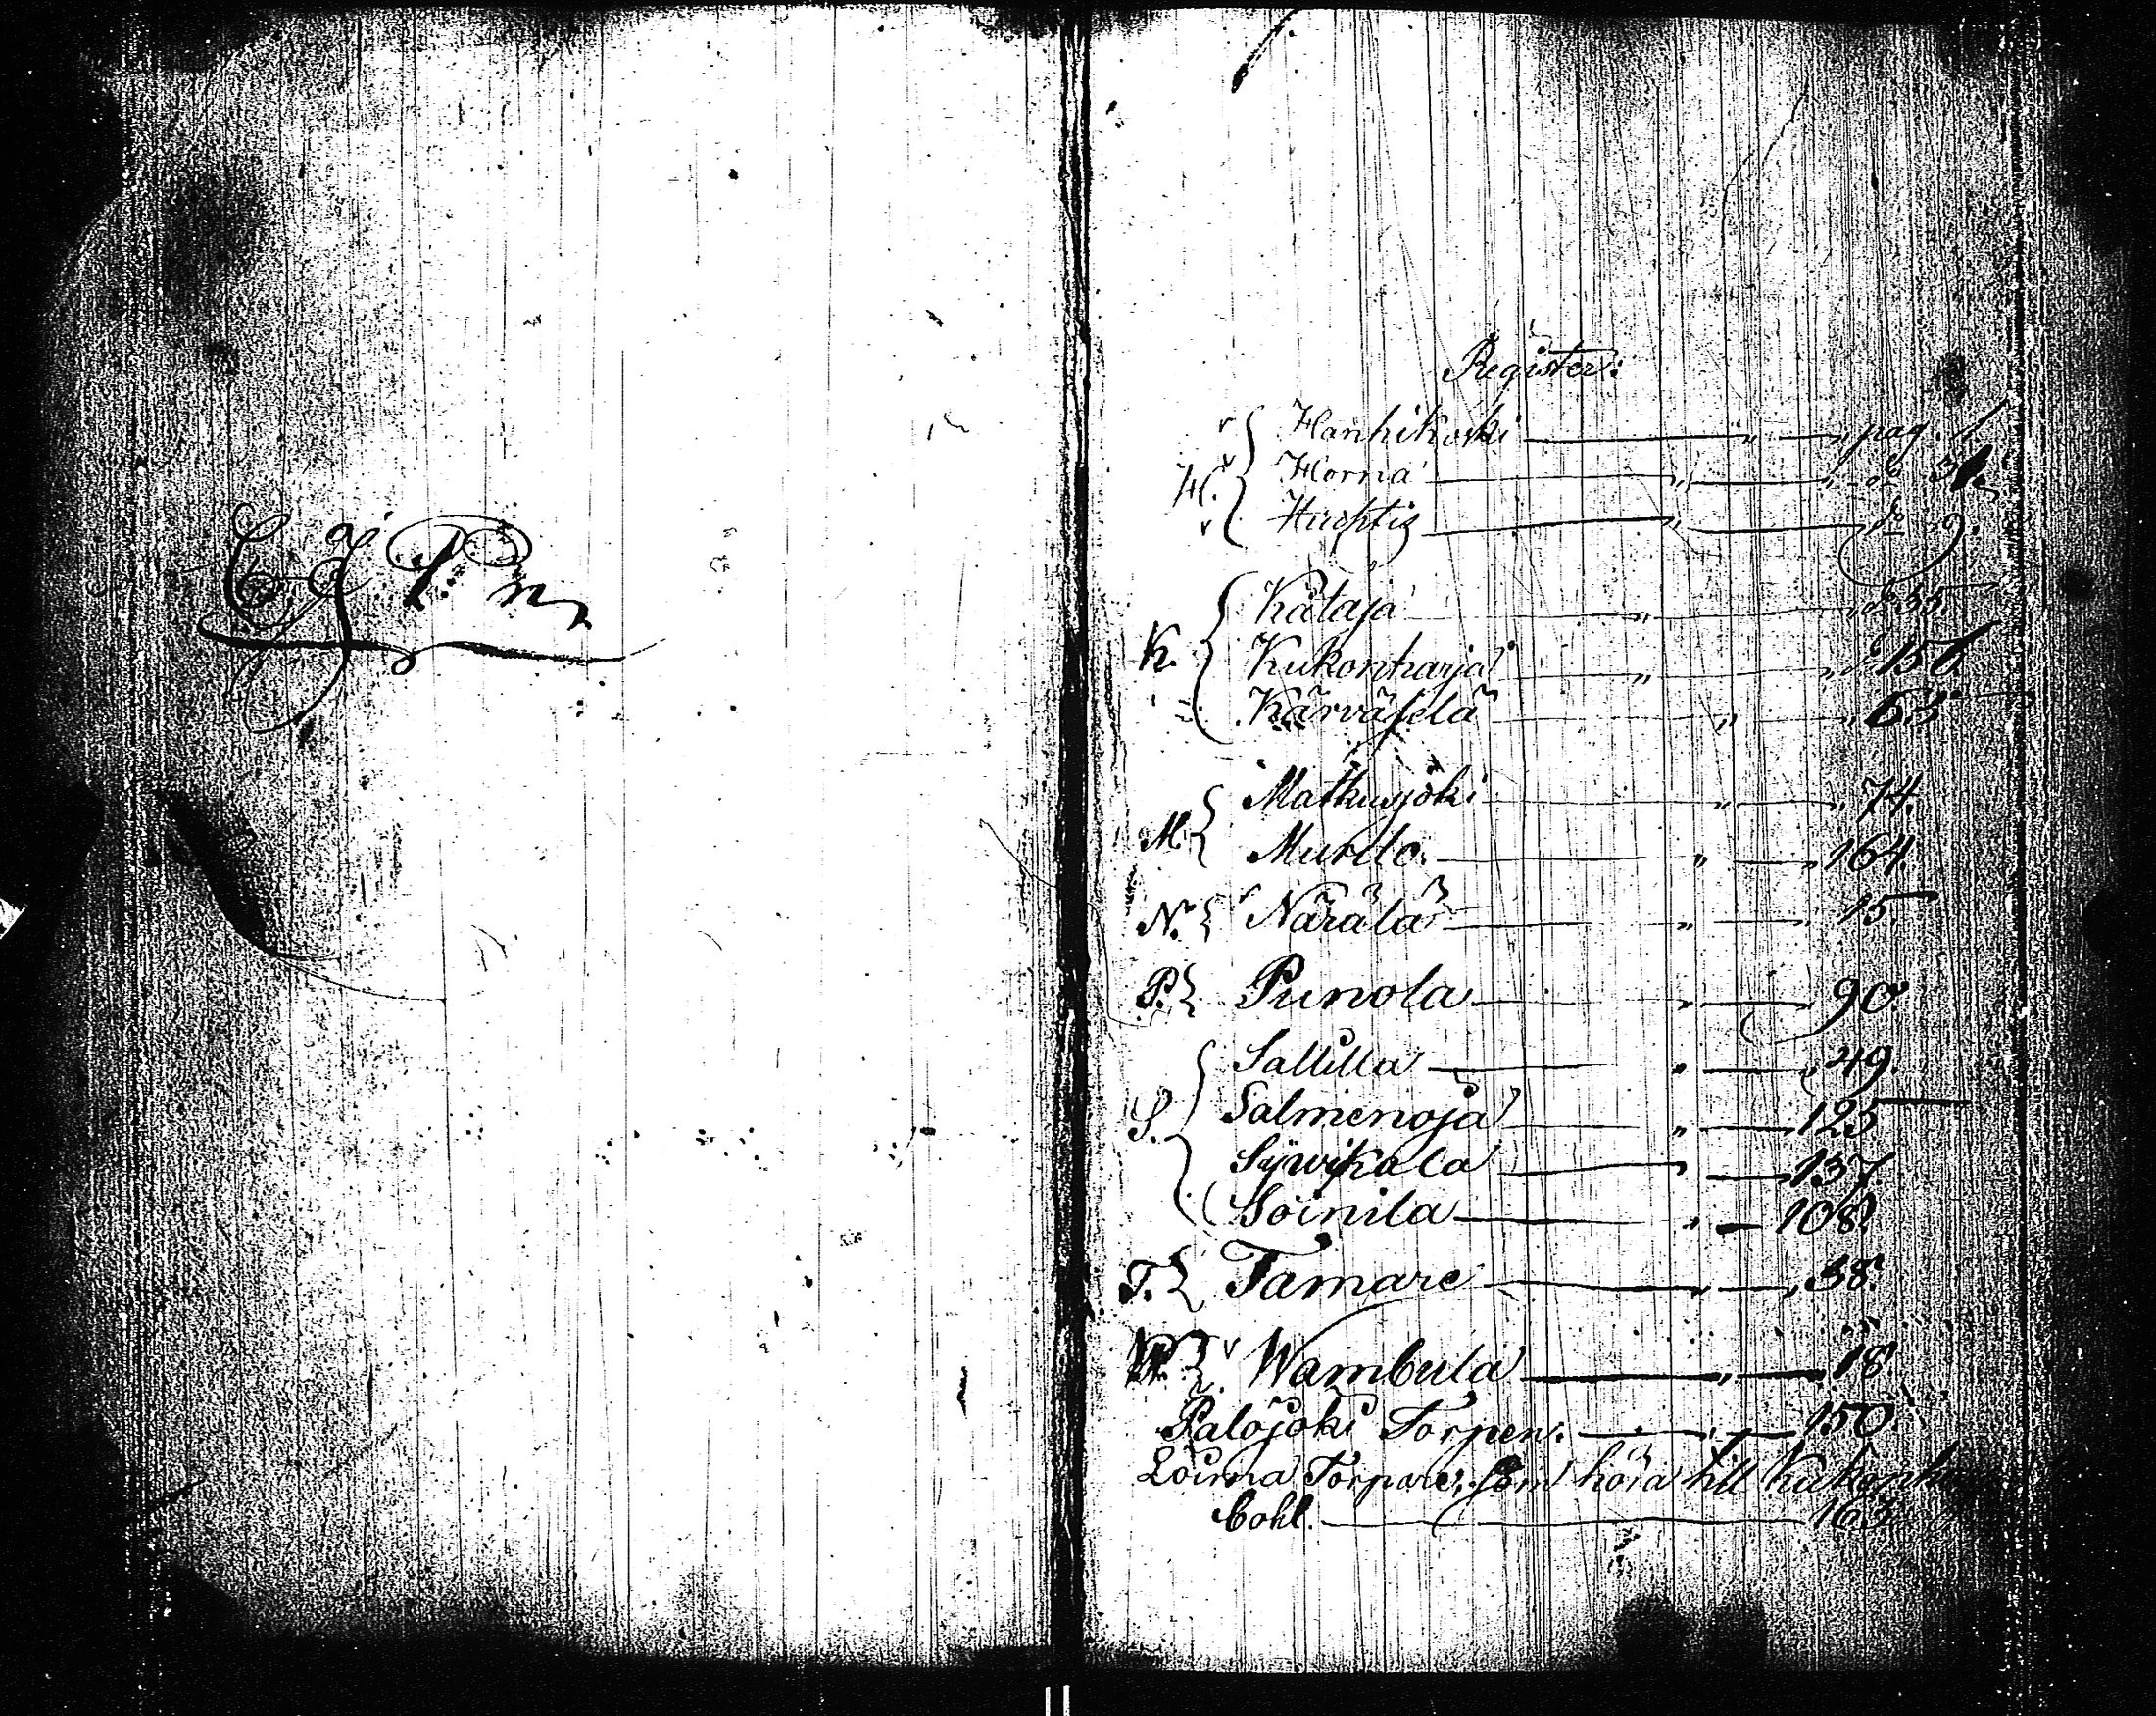 C. J. P. n
Register:
Hanhikoski — " — " pag. 1
H. Horna — " — " do 31.
Huchtis — " — do 9.
Kataja — " — " do 35
K. Kukonharja — " — " do 156
Kärväselä — " — " 63
Matkusjoki — " — " 74.
M. Murdo. — " — " 164.
N. Närälä — " — " 15.
P. Punola — " — " 90
Sallilla — " — " 49.
S. Salmenoja — " — " 125
Sywikala — " — 137.
Soinila — " — 108.
T. Tamare — " — " 38.
W. Wambula — " — 18
Palojoki Torpen. — " — 150.
Loima Torpare, som höra till Kukonh
bohl. — 163.